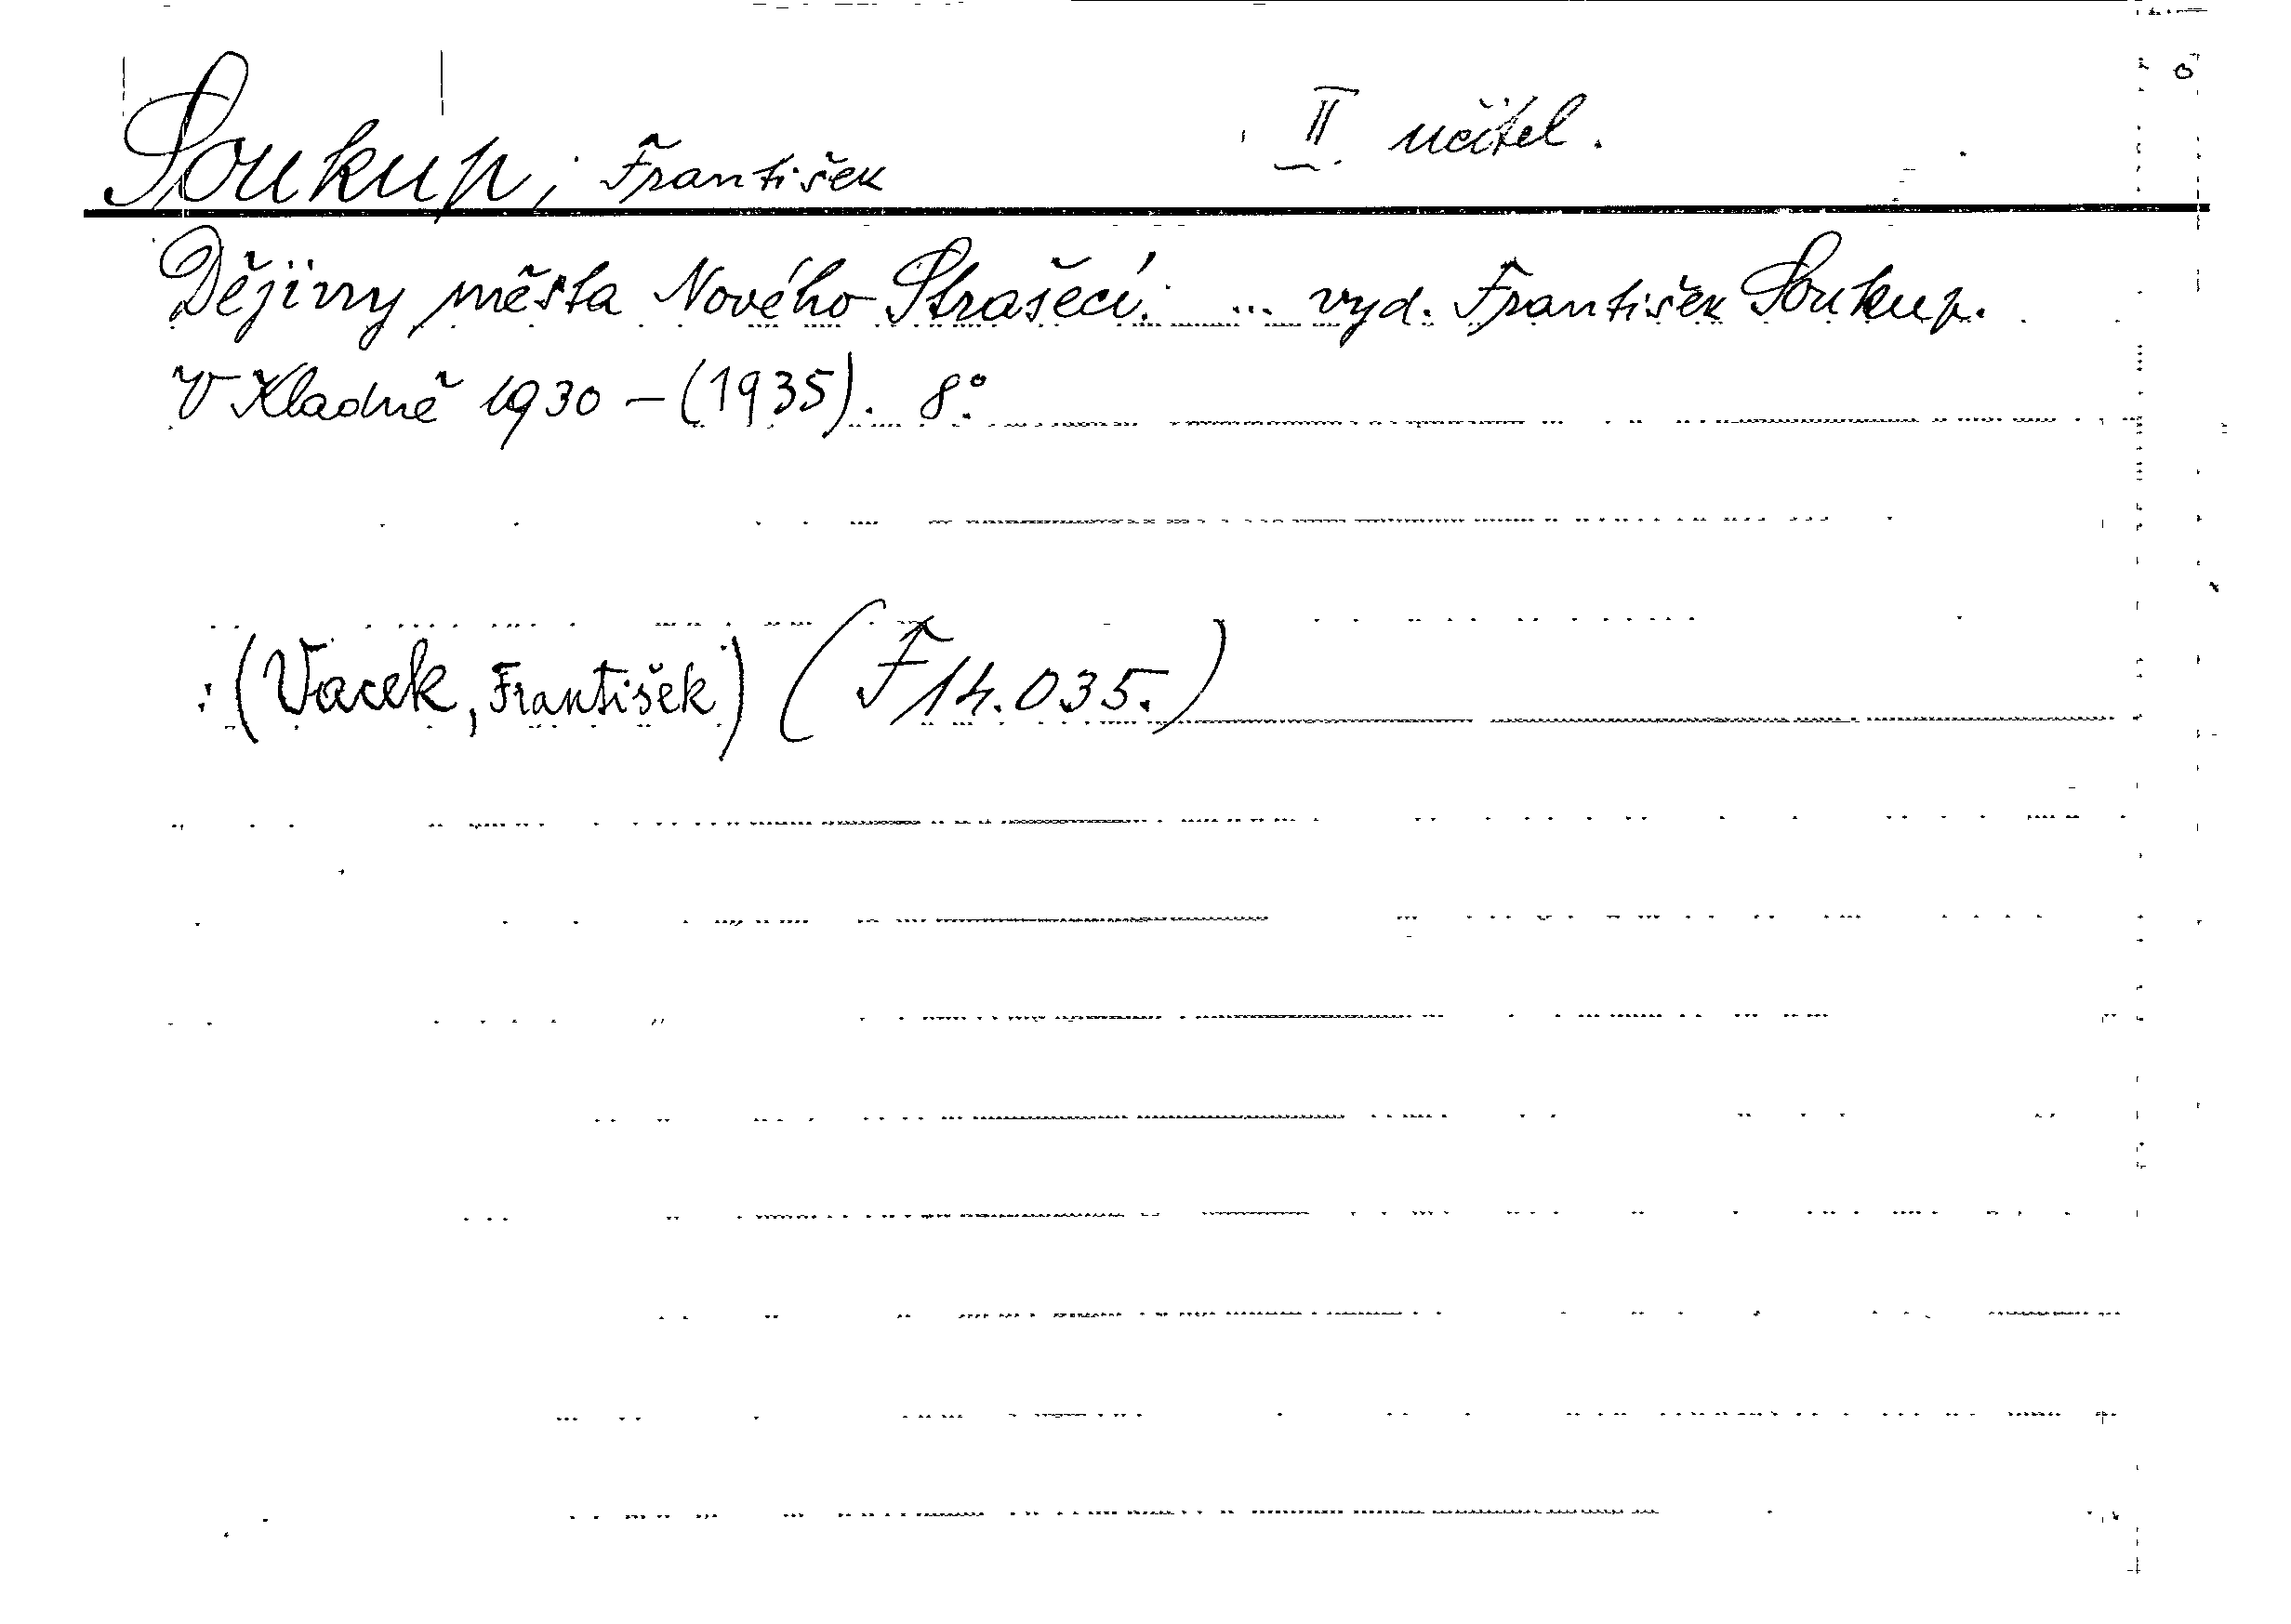 Soukup, František II učitel.
Dějiny města Nového Strašecí. ... vyd. František Soukup.
V Kladně 1930 - (1935). 8°.
: (Vacek, František) (F 14.035.)